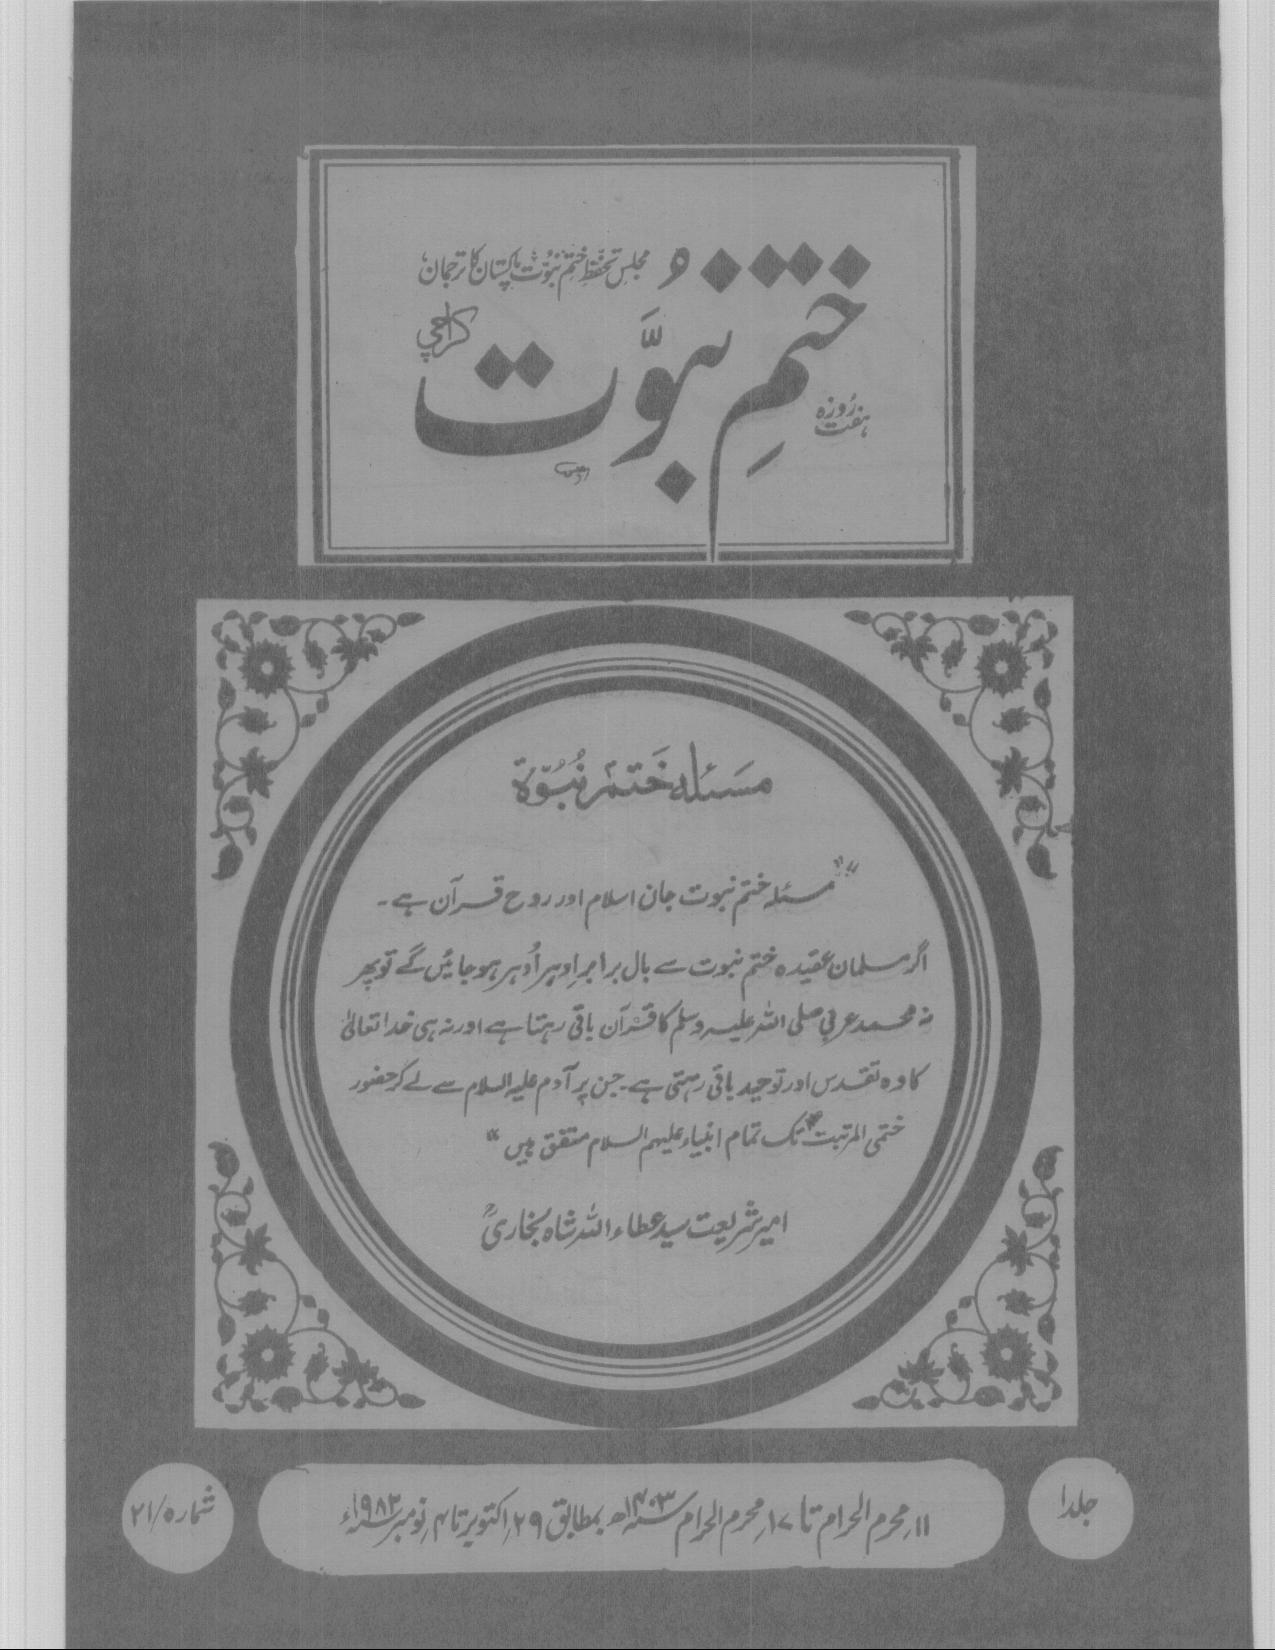 مجلسِ تحفظِ ختمِ نبوّت پاکستان کا ترجمان
ہفت روزہ
ختمِ نبوّت
کراچی
مسئلہ ختم نبوّۃ
”مسئلہ ختم نبوت جان اسلام اور روح قرآن ہے۔
اگر مسلمان عقیدہ ختم نبوت سے بال برابر اِدہر اُدہر ہو جائیں گے تو پھر
نہ محمد عربی صلی اللہ علیہ وسلم کا قرآن باقی رہتا ہے اور نہ ہی خدا تعالیٰ
کا وہ تقدس اور توحید باقی رہتی ہے۔ جس پر آدم علیہ السلام سے لے کر حضور
ختمی المرتبتؐ تک تمام انبیاء علیہم السلام متفق ہیں“
امیر شریعت سید عطاء اللہ شاہ بخاریؒ
جلد ۱
۱۱؍محرم الحرام تا ۱۷؍محرم الحرام ۱۴۰۳ھ بمطابق ۲۹؍اکتوبر تا ۴؍نومبر ۱۹۸۲ء
شمارہ/۲۱